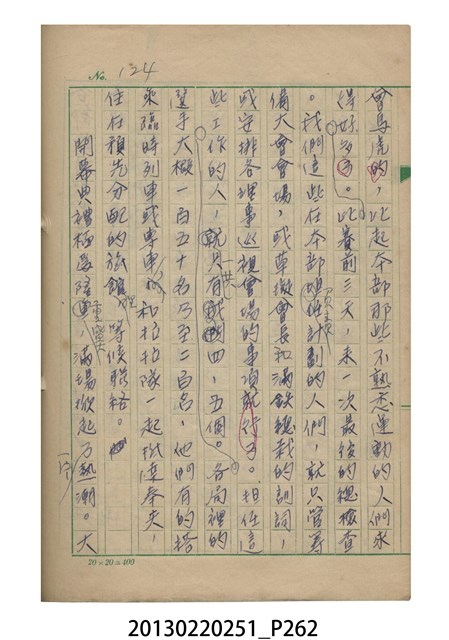 No. 124
會馬虎的，比起本部那些不熟悉運動的人們來
得好多了。比賽前三天，來一次最後的總檢查
。我們這些在本部負責計劃的人們，就只管籌
備大會會場，或草擬會長和滿鉄總裁的訓詞，
或安排各理事巡視會場的事項就行了。担任這
些工作的人，一共就只有四，五個。各局裡的
選手大概一百五十名乃至二百名，他們有的搭
乘臨時列車或專車，和拉拉隊一起抵達奉天，
住在預先分配的旅館，等候聯絡。
開幕典禮極為隆重，滿場掀起了熱潮。大
20×20=400
20130220251_P262